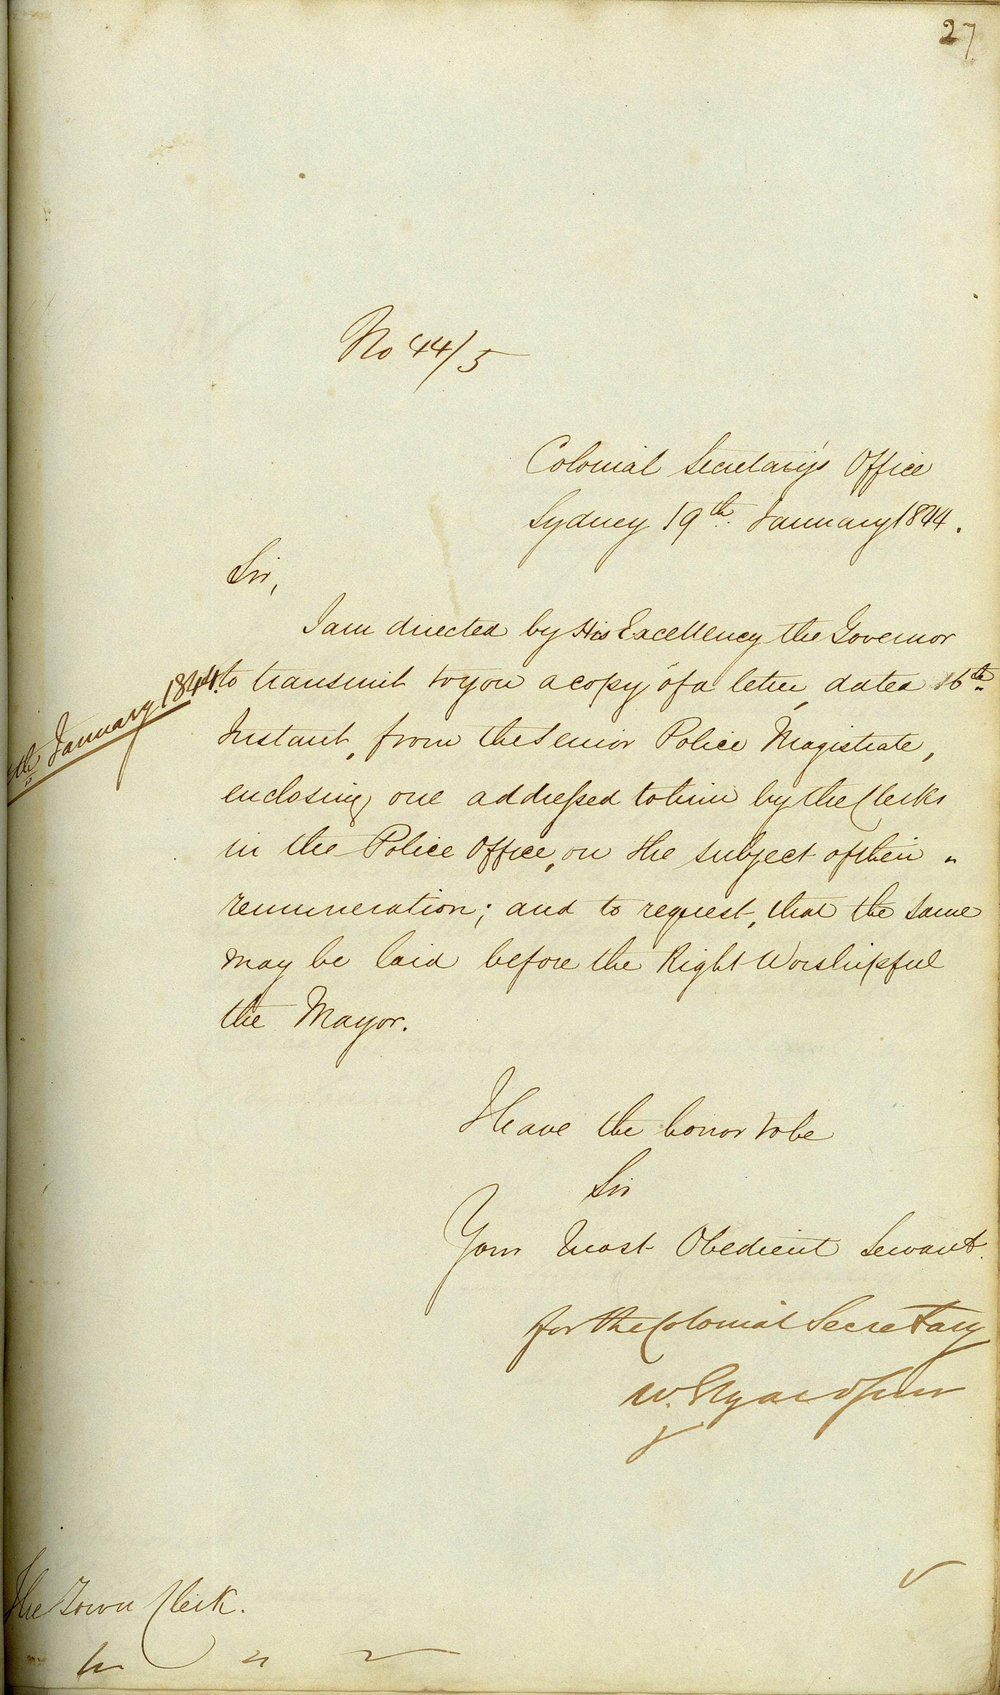 27
No 44/5
Colonial Secretary's Office
Sydney 19th January 1844.
Sir,
I am directed by His Excellency the Governor
to transmit to you a copy of a letter, dated 16th
Instant, from the Senior Police Magistrate,
enclosing one addressed to him by the Clerks
in the Police Office, on the subject of their "
remuneration; and to request, that the same
may be laid before the Right Worshipful
the Mayor.
th January 1844.
I have the honor to be
Sir
Your Most Obedient Servant.
for the Colonial Secretary
W. Elyard Junr
The Town Clerk.